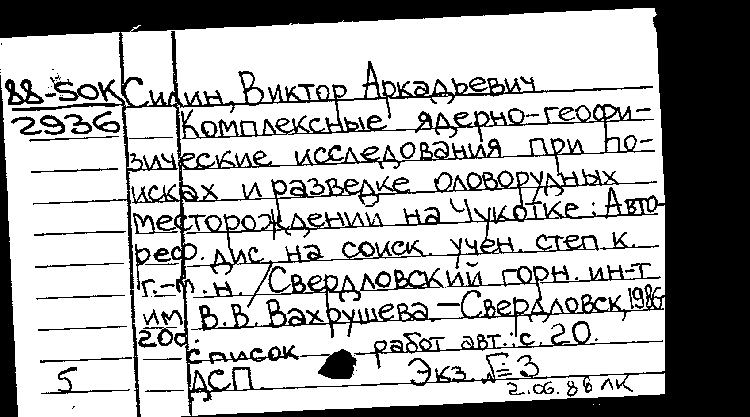 88-5ОК Силин, Виктор Аркадьевич
2936 Комплексные ядерно-геофи-
зические исследования при по-
исках и разведке оловорудных
месторождений на Чукотке: Авто-
реф. дис. на соиск. учен. степ. к.
г.-м.н. / Свердловский горн. ин-т
им. В.В. Вахрушева.-Свердловск, 1986
20с.
Список работ авт.: с. 20.
5 ДСП. Экз. № 3
2.06.88 ЛК